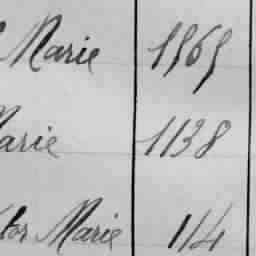 Marie 1969
Marie 1138
tor Marie 114